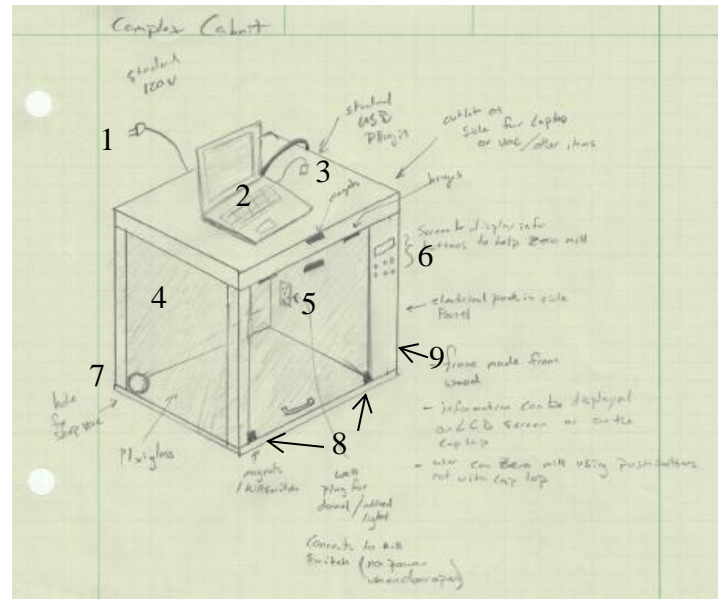 Complex Cabnit
standard
120v
1
standard
USB
Plugin
outlet on
side for Laptop
or vac/other items
2
3
magnets
hinges
Screen to display info
buttons to help Zero mill
4
5
6
electrical parts in side
Panel
7
9
frame made from
wood
hole
for
shop vac
Plexigloss
8
magnets
/killswitch
wall
plug for
dremel/added
light
- information can be displayed
on LCD screen or on the
laptop
- user can Zero mill using push buttons
not with laptop
Connects to Kill
Switch (no power
when door open)